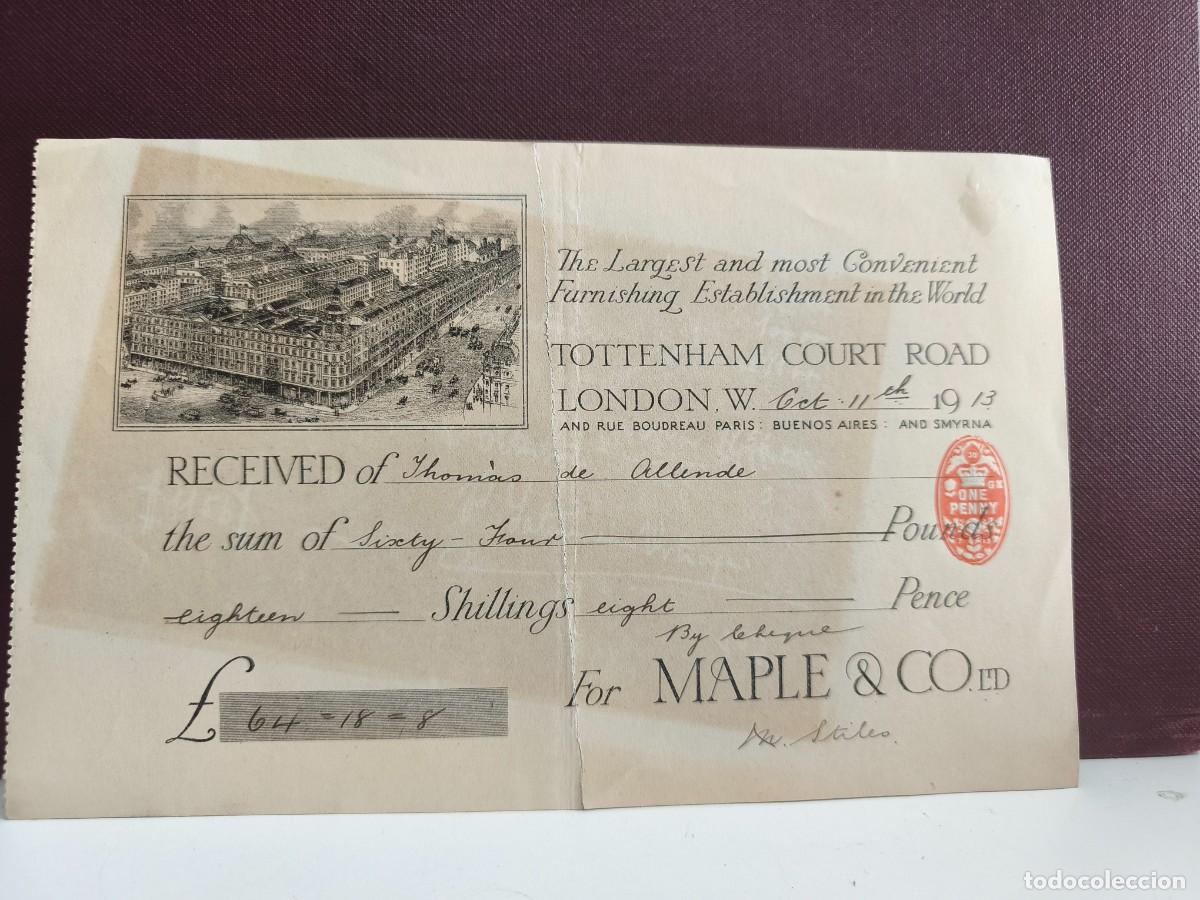 The Largest and most Convenient
Furnishing Establishment in the World
TOTTENHAM COURT ROAD
LONDON, W. Oct. 11th 1913
AND RUE BOUDREAU PARIS: BUENOS AIRES: AND SMYRNA
RECEIVED of Thomas de Allende
30
GK
ONE
PENNY
the sum of Sixty-Four Pounds
eighteen Shillings eight Pence
By Cheque
For MAPLE & CO. LTD
£ 64=18=8
Stiles.
todocoleccion